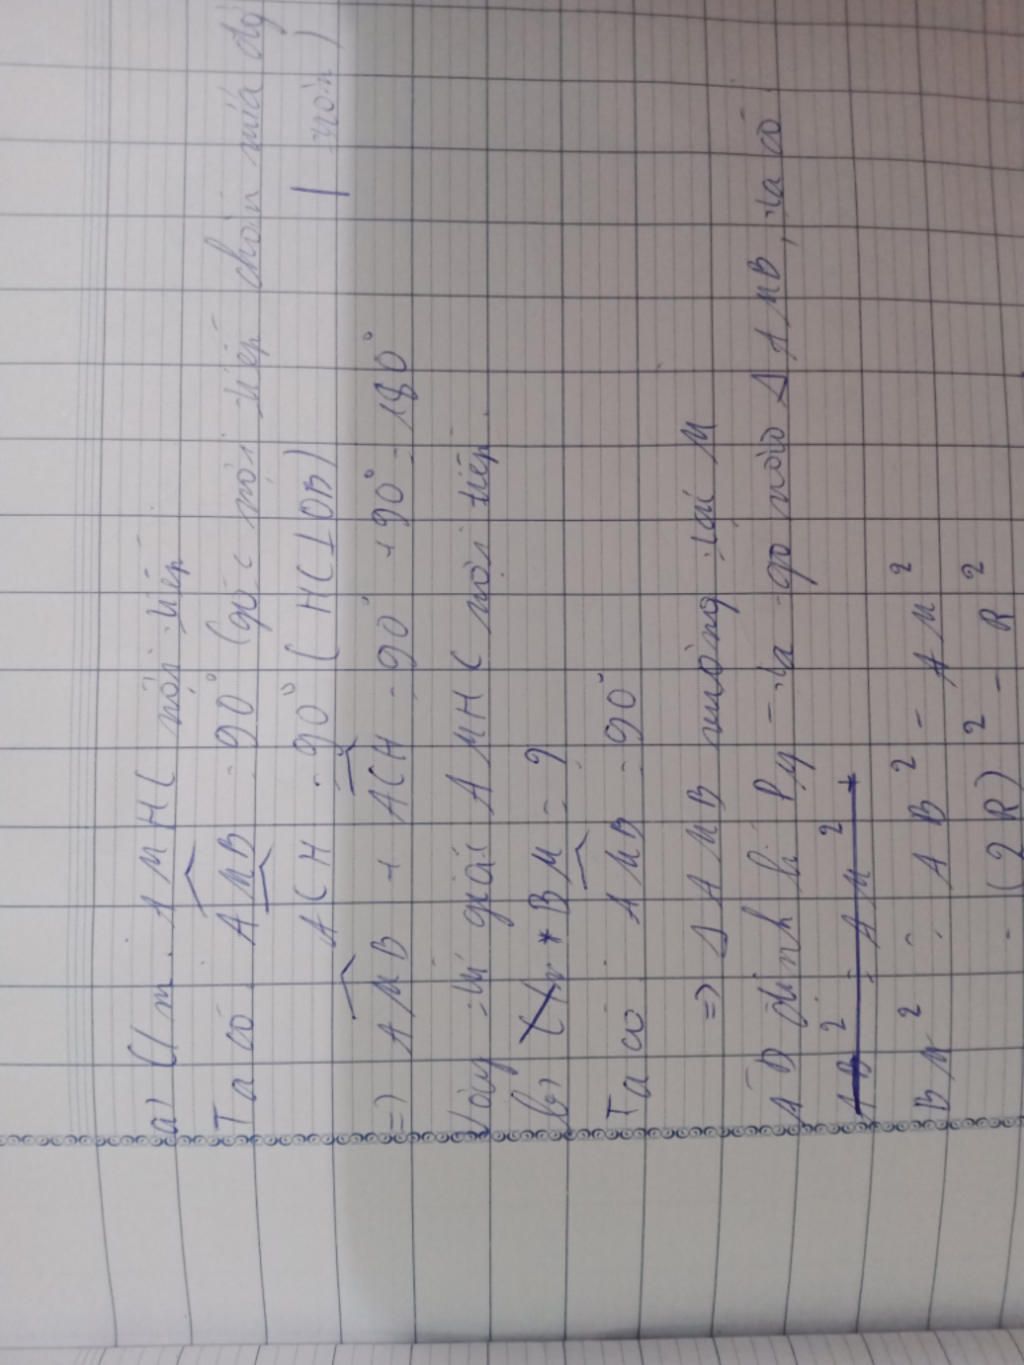 a) C/m : AMHC nội tiếp
Ta có : AMB = 90° (góc nội tiếp chắn nửa đg
tròn)
ACH = 90° ( HC⊥OB)
=> AMB + ACH = 90° + 90° = 180°
Vậy tứ giác AMHC nội tiếp.
b) * BM = ?
Ta có AMB = 90°
=> Δ AMB vuông tại M
AD định lí Py - ta - go vào Δ AMB, ta có
AB² = AM² +
BM² = AB² - AM²
= (2R)² - R²